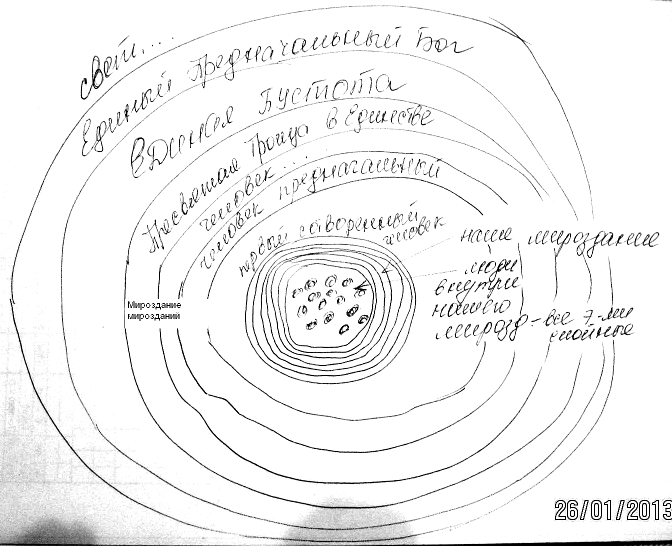 свет....
Единый Предначальный Бог
Единая Пустота
Пресвятая Троица в Единстве
человек...
человек предначальный
первый сотворенный
человек
наше мироздание
люди
внутри
нашего
мирозд-все 7-ми
слойные
Мироздание
мирозданий
26/01/2013